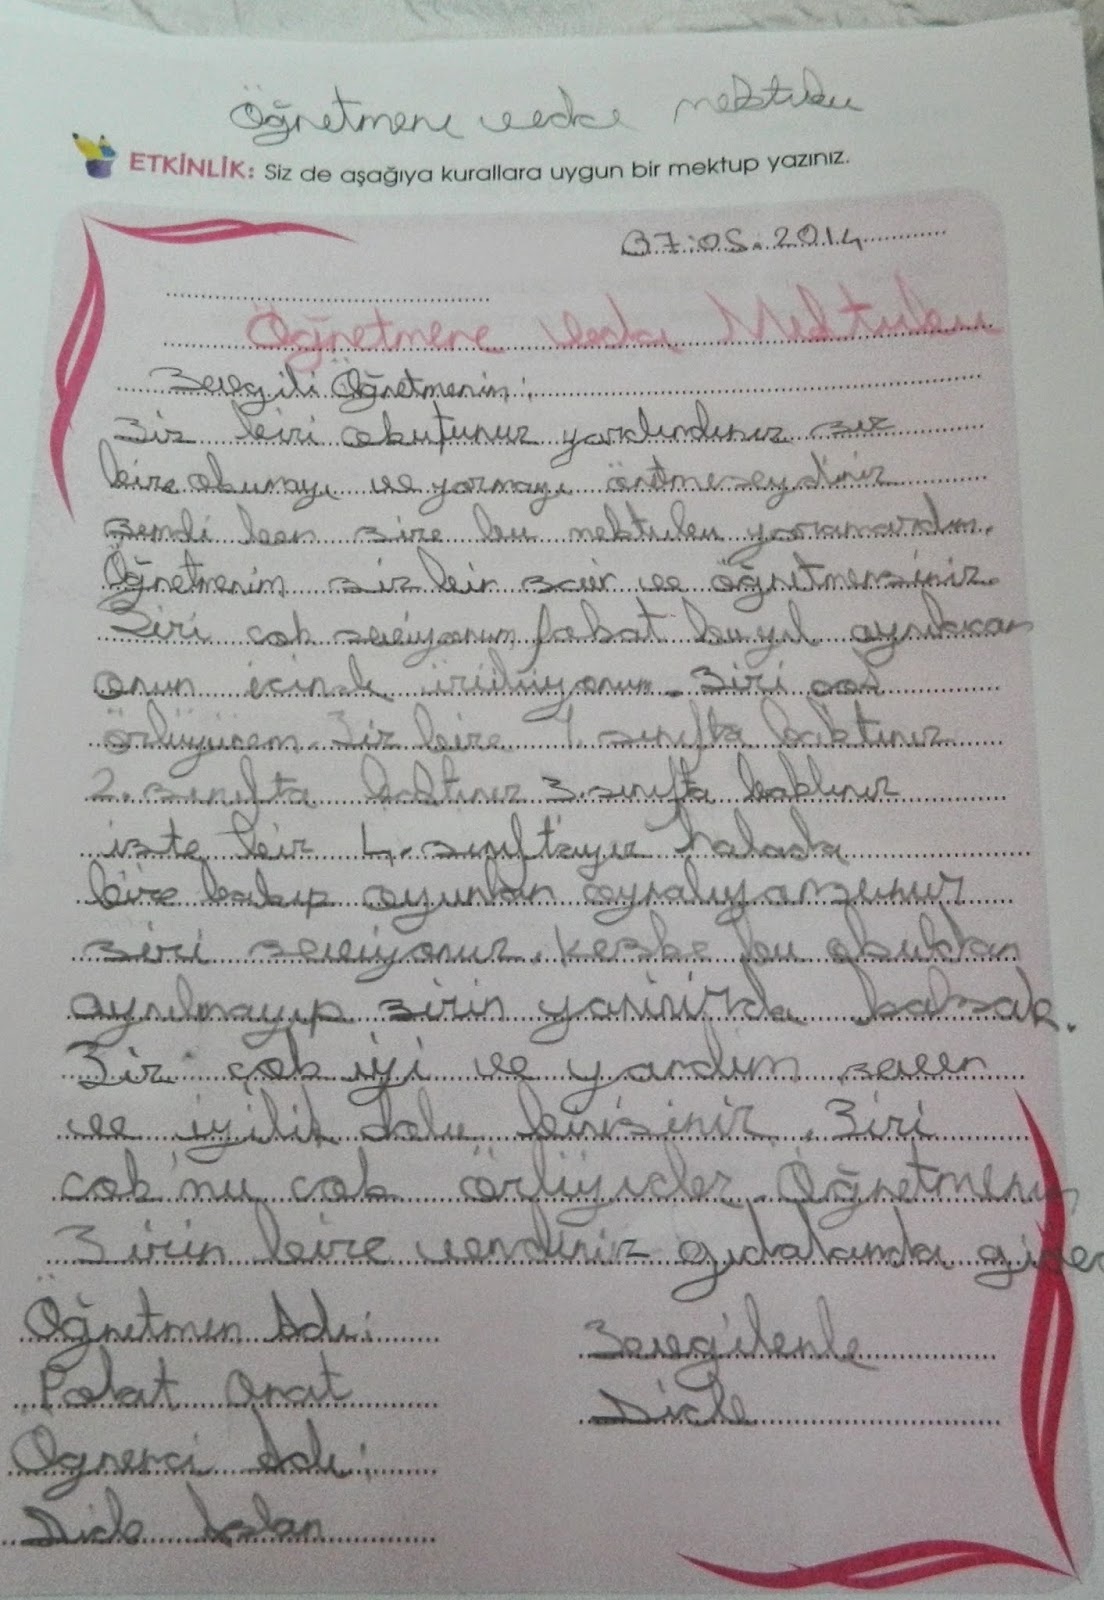 Öğretmene veda mektubu
ETKİNLİK: Siz de aşağıya kurallara uygun bir mektup yazınız.
07.05.2014
Öğretmene veda Mektubu
Sevgili Öğretmenim:
Siz bizi okutunuz yardındınız siz
bize okumayı ve yazmayı öretmeseydiniz
şimdi ben size bu mektubu yazamazdım.
Öğretmenim siz bir ve öğretmensiniz.
Sizi çok seviyorum fakat bu yıl
onun için üzülüyorum. Sizi çok
özlüyürem. Siz bize 1. sınıfta baktınız
2. sınıfta baktınız 3. sınıfta baktınız
işte bir 4. sınıftayız halada
bize bakıp oyunlar oynalıyorsunuz
sizi seviyoruz. Keşke bu okuldan
ayrılmayıp sizin yanınızda kalsak.
Siz çok iyi ve yardım sever
ve iyilik dolu birisiniz. Sizi
çok'nu çok Öğretmenim
Sizin bize verdiniz
Öğretmen Adı:
Polat Onat
Sevgilenle
Dicle
Ögrenci Adı:
Dicle Aslan